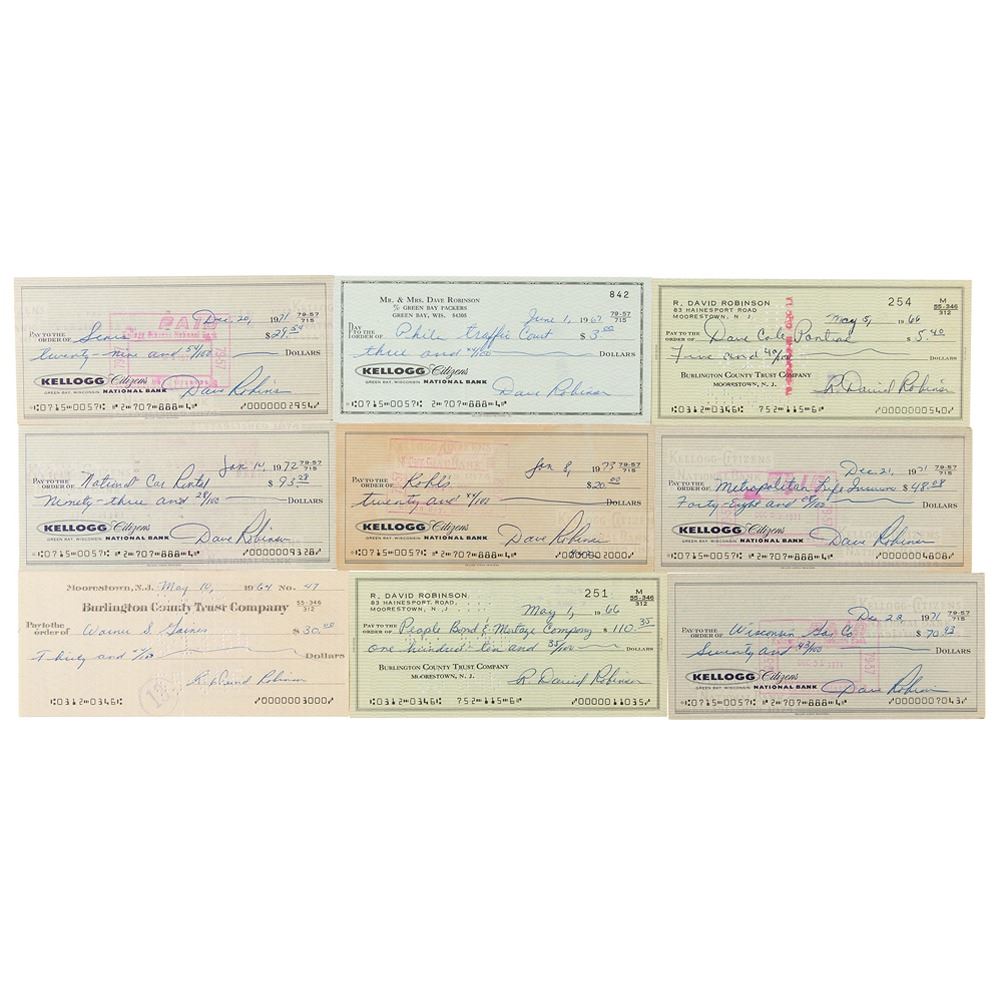 Dec. 20, 1971 79-57
715
PAID
PAY TO THE
ORDER OF Sears $ 29.54
twenty-nine and 54/100 DOLLARS
KELLOGG Citizens
GREEN BAY, WISCONSIN NATIONAL BANK Dave Robinson
⑆0715⑈0057⑆ ⑈2⑈707⑈888⑈4⑈ ⑇0000002954⑇
842
MR. & MRS. DAVE ROBINSON
℅ GREEN BAY PACKERS
GREEN BAY, WIS. 54305
June 1, 1967 79-57
715
PAY
TO THE
ORDER OF Phila Traffic Court $ 3.00
three and 00/100 DOLLARS
KELLOGG Citizens
GREEN BAY, WISCONSIN NATIONAL BANK Dave Robinson
⑆0715⑈0057⑆ ⑈2⑈707⑈888⑈4⑈
R. DAVID ROBINSON 254 M
83 HAINESPORT ROAD 55-346
MOORESTOWN, N. J. 312
May 5, 1966
PAY TO THE
ORDER OF Dave Cole Pontiac $ 5.40
Five and 40/100 DOLLARS
BURLINGTON COUNTY TRUST COMPANY
MOORESTOWN, N. J. R. David Robinson
⑆0312⑈0346⑆ 752⑈115⑈6⑈ ⑇0000000540⑇
Jan 14, 1972 79-57
715
PAY TO THE
ORDER OF National Car Rental $ 93.28
Ninety-three and 28/100 DOLLARS
KELLOGG Citizens
GREEN BAY, WISCONSIN NATIONAL BANK Dave Robinson
⑆0715⑈0057⑆ ⑈2⑈707⑈888⑈4⑈ ⑇0000009328⑇
Jan 8, 1973 79-57
715
PAY TO THE
ORDER OF Kohl's $ 20.00
twenty and 00/100 DOLLARS
KELLOGG Citizens
GREEN BAY, WISCONSIN NATIONAL BANK Dave Robinson
⑆0715⑈0057⑆ ⑈2⑈707⑈888⑈4⑈ ⑇0000002000⑇
KELLOGG-CITIZENS
Dec. 21, 1971 79-57
715
PAY TO THE
ORDER OF Metropolitan Life Insurance $ 48.08
Forty-Eight and 08/100 DOLLARS
KELLOGG Citizens
GREEN BAY, WISCONSIN NATIONAL BANK Dave Robinson
⑆0715⑈0057⑆ ⑈2⑈707⑈888⑈4⑈ ⑇0000004808⑇
Moorestown, N.J. May 10, 1964 No. 47
Burlington County Trust Company 55-346
312
Pay to the
order of S. Gaines $ 30.00
Thirty and 00/100 Dollars
Robinson
⑆0312⑈0346⑆ ⑇0000003000⑇
R. DAVID ROBINSON 251 M
83 HAINESPORT ROAD, 55-346
MOORESTOWN, N. J. 312
May 1, 1966
PAY TO THE
ORDER OF People Bond & Mortage Company $ 110.35
one hundred-ten and 35/100 DOLLARS
BURLINGTON COUNTY TRUST COMPANY
MOORESTOWN, N. J. R. David Robinson
⑆0312⑈0346⑆ 752⑈115⑈6⑈ ⑇0000011035⑇
Dec 20, 1971 79-57
715
PAY TO THE
ORDER OF Wisconsin Gas Co $ 70.43
Seventy and 43/100 DOLLARS
KELLOGG Citizens
GREEN BAY, WISCONSIN NATIONAL BANK Dave Robinson
⑆0715⑈0057⑆ ⑈2⑈707⑈888⑈4⑈ ⑇0000007043⑇